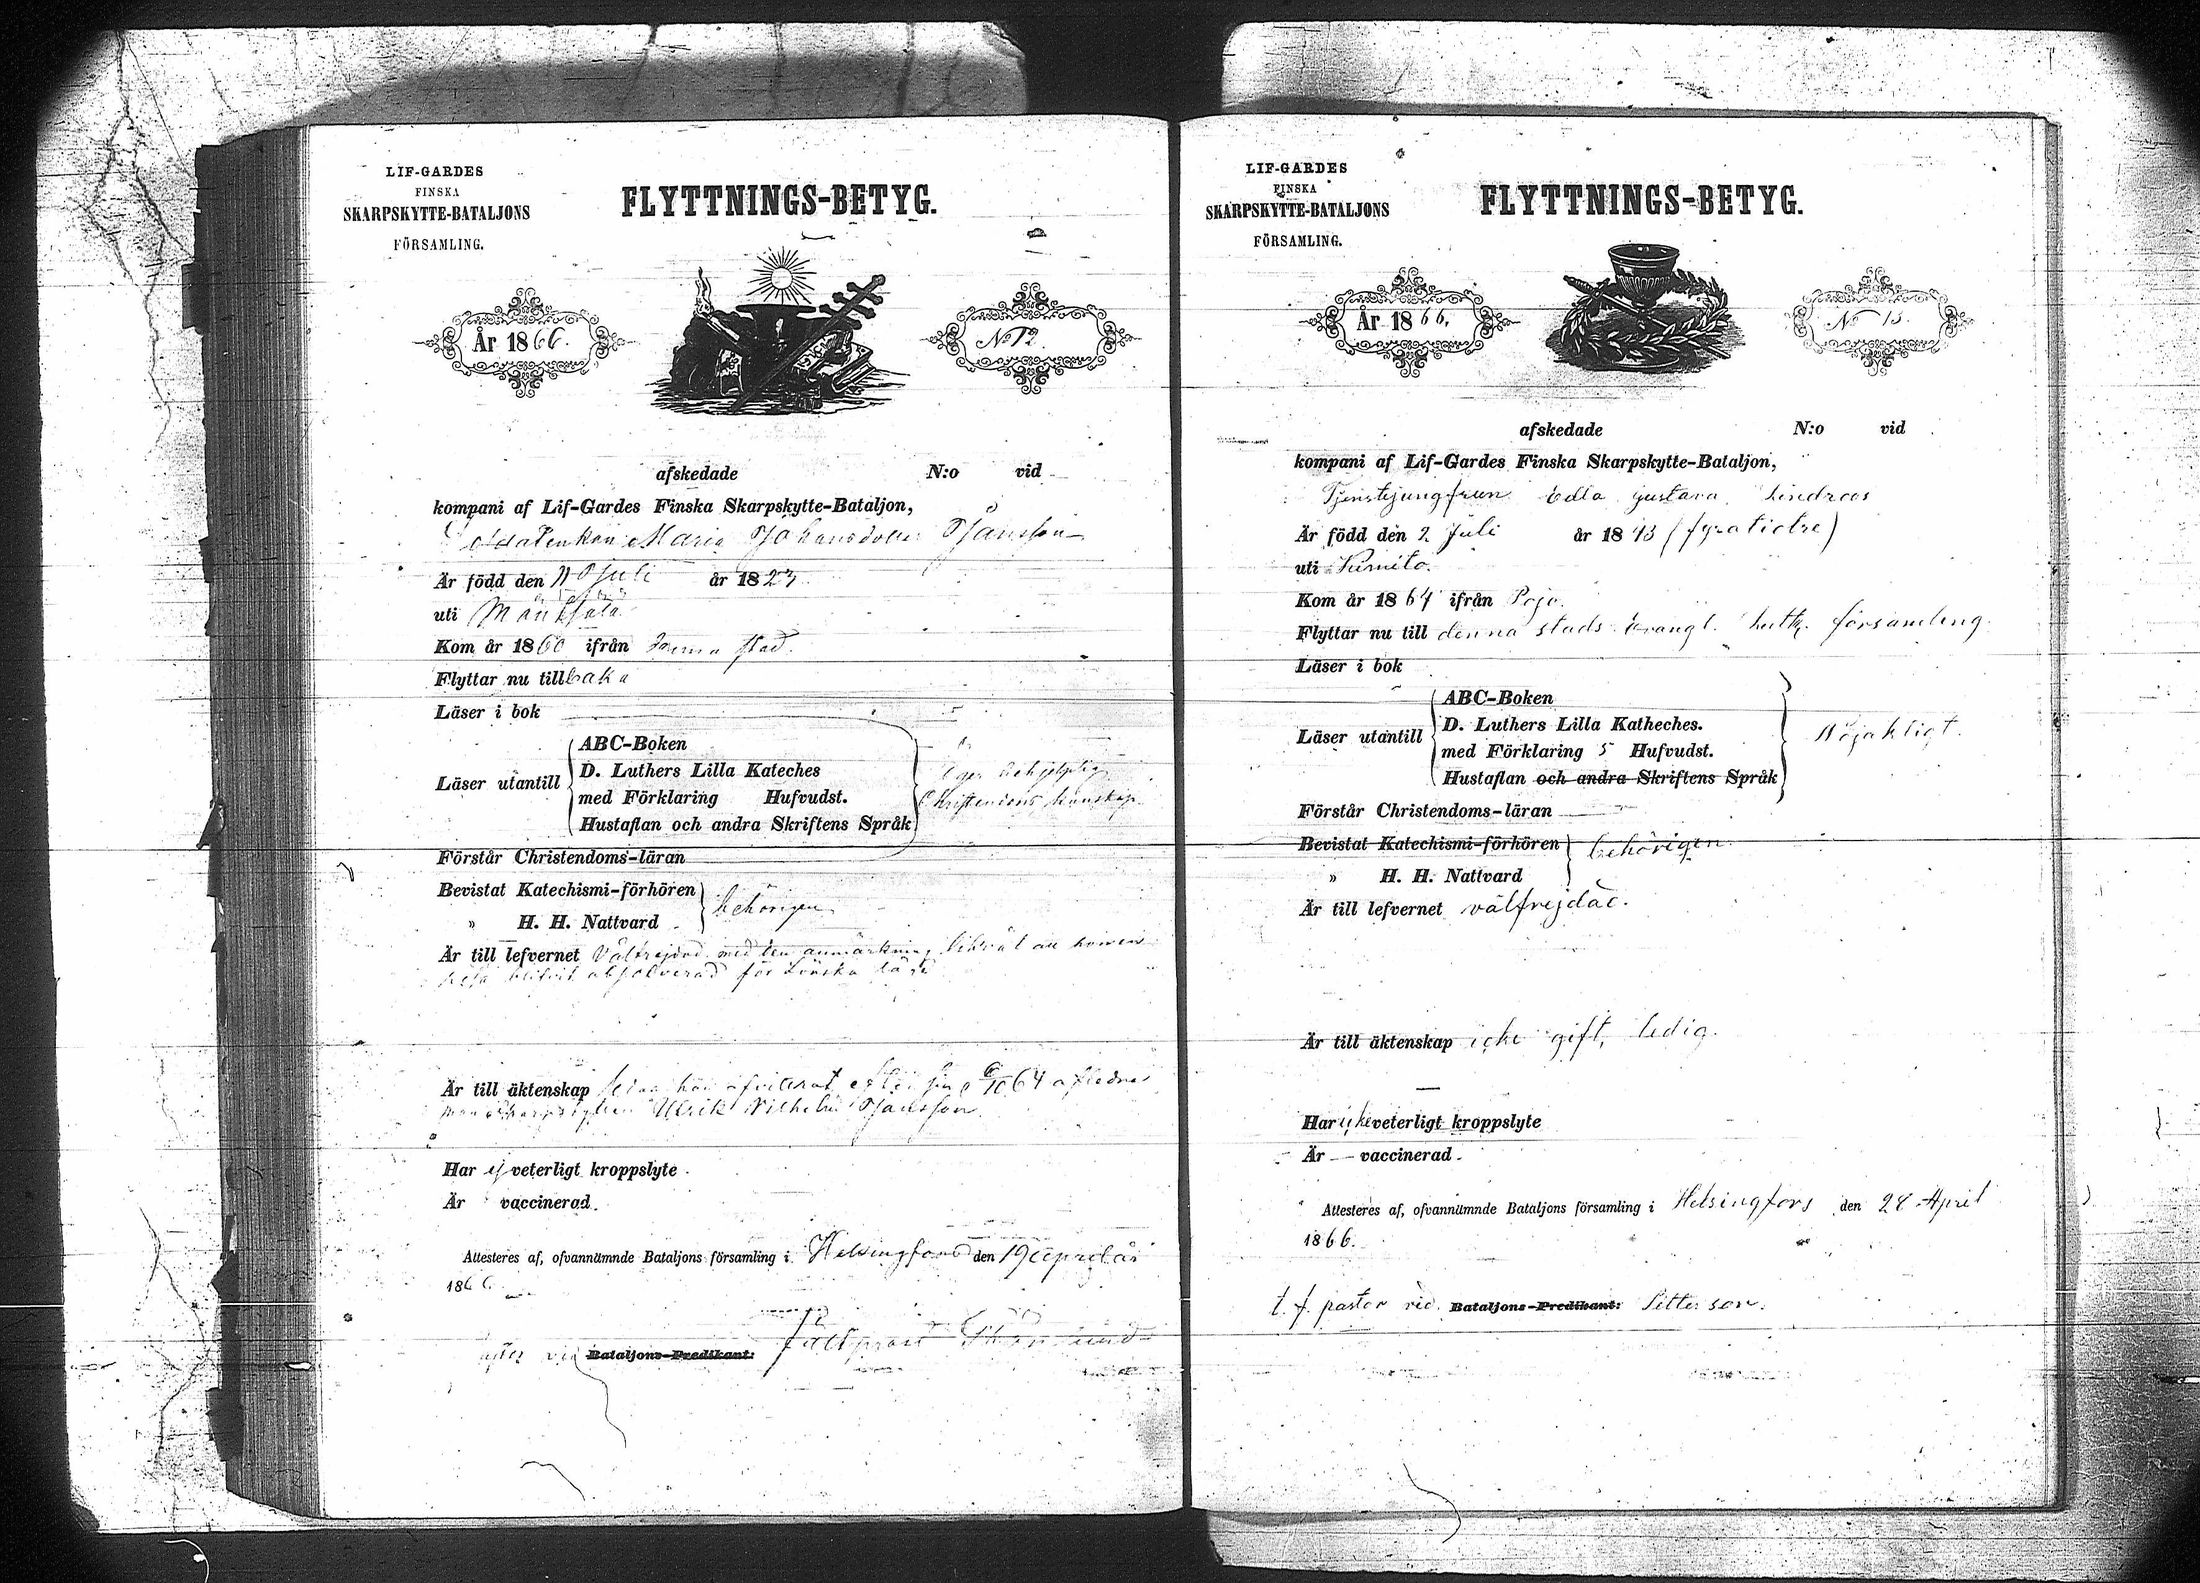 LIF-GARDES
FINSKA
SKARPSKYTTE-BATALJONS
FÖRSAMLING.
FLYTTNINGS-BETYG.
År 1866.
No 12.
afskedade N:o vid
kompani af Lif-Gardes Finska Skarpskytte-Bataljon,
Soldatenkan Maria Johansdotter Jansson
Är född den Juli år 1823
uti Mäntsälä
Kom år 1860 ifrån denna stad.
Flyttar nu tillbaka
Läser i bok
Läser utantill
ABC-Boken
D. Luthers Lilla Kateches
med Förklaring Hufvudst.
Hustaflan och andra Skriftens Språk
Eger behjelplig
Christendoms kunskap
Förstår Christendoms-läran
Bevistat Katechismi-förhören
» H. H. Nattvard
behörigen
Är till lefvernet Välfrejdad med den anmärkning, likväl att hon en
resa blifvit absolverad för Lönska läge
Är till äktenskap ledig efter sin 6/10 64 aflidne
man Ulrik Wilhelm Jansson.
Har ej veterligt kroppslyte.
Är vaccinerad.
Attesteres af, ofvannämnde Bataljons församling i Helsingfors den 19 April år
1866.
vid Bataljons-Predikant:
LIF-GARDES
FINSKA
SKARPSKYTTE-BATALJONS
FÖRSAMLING.
FLYTTNINGS-BETYG.
År 1866.
No 13.
afskedade N:o vid
kompani af Lif-Gardes Finska Skarpskytte-Bataljon,
Tjenstejungfrun Edla Gustava Lindroos
Är född den 2 Juli år 1843 (fyratiotre)
uti Kimito.
Kom år 1864 ifrån Pojo.
Flyttar nu till denna stads Evangl. Luth. församling.
Läser i bok
Läser utantill
ABC-Boken
D. Luthers Lilla Katheches.
med Förklaring 5 Hufvudst.
Hustaflan och andra Skriftens Språk
Nöjaktigt.
Förstår Christendoms-läran
Bevistat Katechismi-förhören
» H. H. Nattvard
behörigen
Är till lefvernet välfrejdad.
Är till äktenskap icke gift, ledig.
Har icke veterligt kroppslyte
Är — vaccinerad.
Attesteres af, ofvannämnde Bataljons församling i Helsingfors den 28 April
1866.
t. f. pastor vid Bataljons-Predikant: